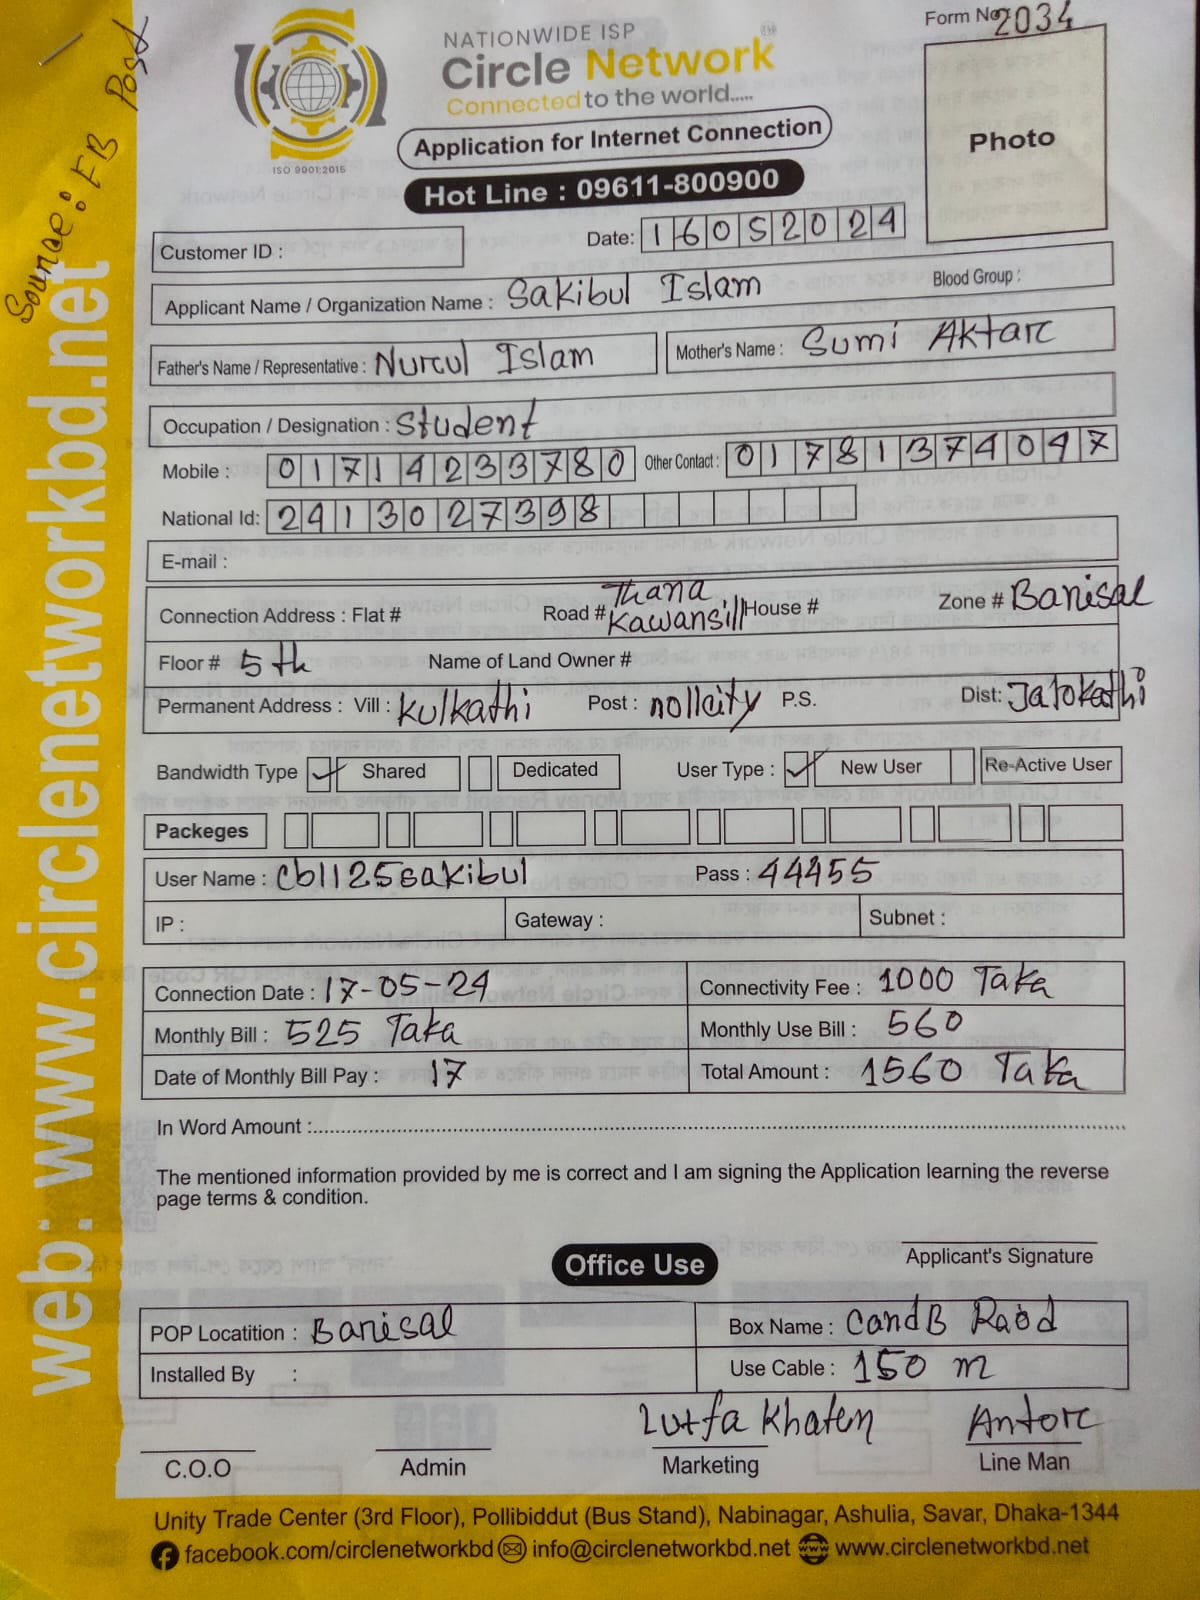 Form No 2034
NATIONWIDE ISP
Circle Network
Connected to the world.....
ISO 9001:2015
Application for Internet Connection
Hot Line : 09611-800900
Photo
Source: FB Post
web: www.circlenetworkbd.net
Customer ID :
Date: 16052024
Applicant Name / Organization Name : Sakibul Islam Blood Group :
Father's Name / Representative : Nurul Islam Mother's Name : Sumi Aktar
Occupation / Designation : Student
Mobile : 01714233780 Other Contact : 01781374047
National Id: 2413027398
E-mail :
Connection Address : Flat # Road # Thana Kawansill House # Zone # Barisal
Floor # 5th Name of Land Owner #
Permanent Address : Vill : Kulkathi Post : nollcity P.S. Dist: Jalokathi
Bandwidth Type Shared Dedicated User Type : New User Re-Active User
Packeges
User Name : cb1125sakibul Pass : 44455
IP : Gateway : Subnet :
Connection Date : 17-05-24 Connectivity Fee : 1000 Taka
Monthly Bill : 525 Taka Monthly Use Bill : 560
Date of Monthly Bill Pay : 17 Total Amount : 1560 Taka
In Word Amount :
The mentioned information provided by me is correct and I am signing the Application learning the reverse
page terms & condition.
Applicant's Signature
Office Use
POP Locatition : Barisal Box Name : CandB Raod
Installed By : Use Cable : 150 m
Lutfa Khaten Antor
C.O.O Admin Marketing Line Man
Unity Trade Center (3rd Floor), Pollibiddut (Bus Stand), Nabinagar, Ashulia, Savar, Dhaka-1344
facebook.com/circlenetworkbd info@circlenetworkbd.net www.circlenetworkbd.net